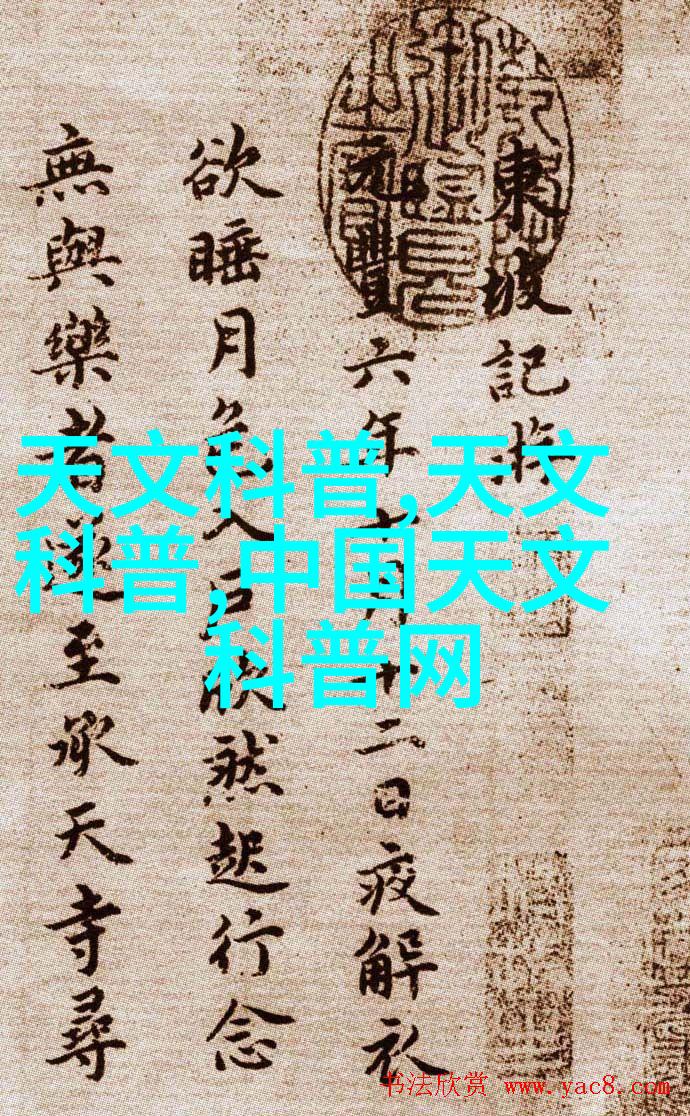 東坡記
元豐六年十月十二日夜解衣
欲睡月色入戶欣然起行念
無與樂者遂至承天寺尋
天文科普,天文
科普,中国天文
科普网
书法欣赏 www.yac8.com